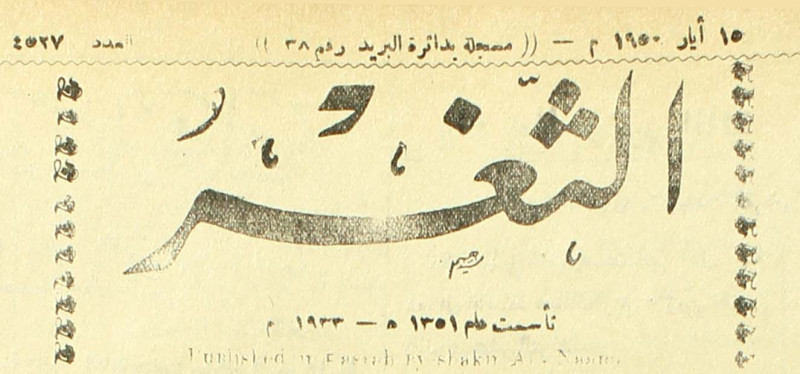 ١٥ أيار ١٩٥٠ م — (( مسجلة بدائرة البريد رقم ٣٨ )) العدد ٤٥٢٧
الثَّغْرُ
رحيم
تأسست عام ١٣٥١ ه — ١٩٣٣ م
Published in Basrah by shakir Al-